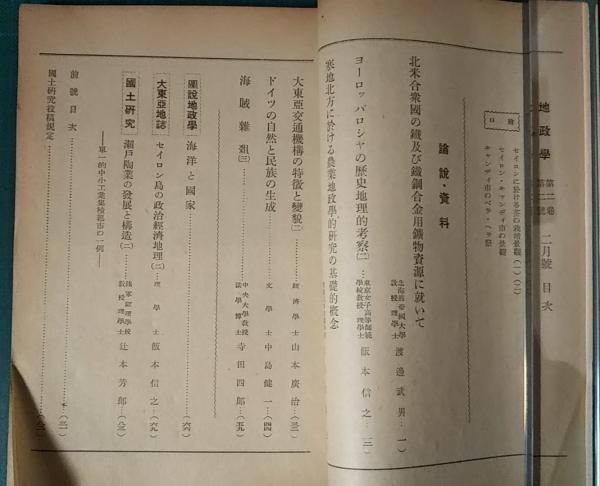 地政學 第二卷 第二號 二月號 目次
口繪
セイロンに於ける茶の栽培景觀(一)(二)
セイロン・キャンディ市の景觀
キャンディ市のペラ・ヘラ祭
論說・資料
北米合衆國の鐵及び鐵鋼合金用鑛物資源に就いて 北海道帝國大學教授 理學士 渡邊武男…(一)
ヨーロッパロシヤの歷史地理的考察(二) 東京女子高等師範學校教授 理學士 飯本信之…(一三)
寒地北方に於ける農業地政學的研究の基礎的概念
大東亞交通機構の特徵と變貌(二) 經濟學士 山本廣治…(三三)
ドイツの自然と民族の生成 文學士 中島健一…(四四)
海賊雜俎(三) 中央大學教授 法學博士 寺田四郎…(五九)
圖說地政學 海洋と國家 …(六六)
大東亞地誌 セイロン島の政治經濟地理(二) 理學士 飯本信之…(六九)
國土硏究 瀨戶陶業の發展と構造(二) 陸軍經理學校教授 理學士 辻本芳郎…(八三)
――單一的中小工業集積都市の一例――
前號目次
國土硏究投稿規定